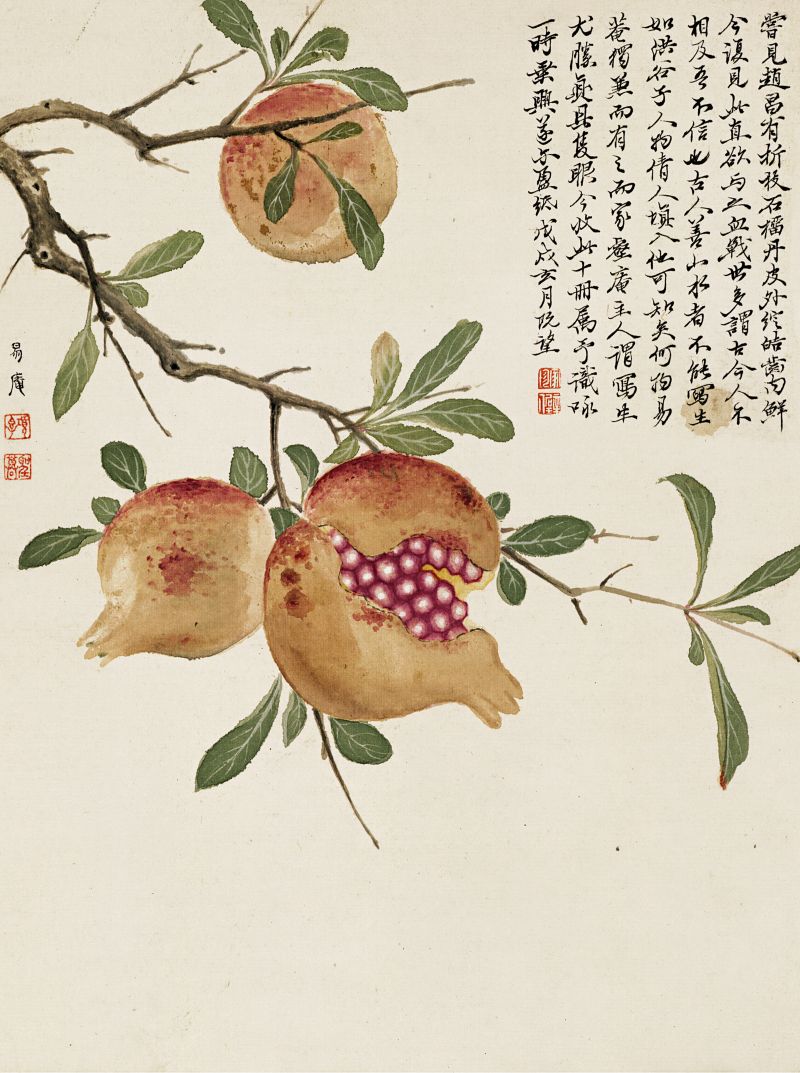 嘗見趙昌有折枝石榴丹皮外綻皓齒內鮮
今復見此真欲与之血戰世多謂古今人不
相及吾不信也古人善山水者不能寫生
如洪谷子人物倩人填入他可知矣何物易
菴獨兼而有之而家壑庵主人謂寫生
尤勝䏻具隻眼今收此十冊属予識咏
一時乘興遂尔盈紙戊戌玄月阮望
易庵